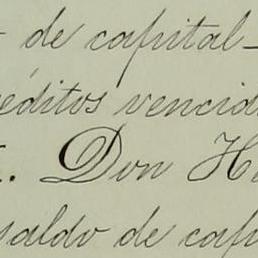 de capital
réditos vencid
Don H
saldo de cap